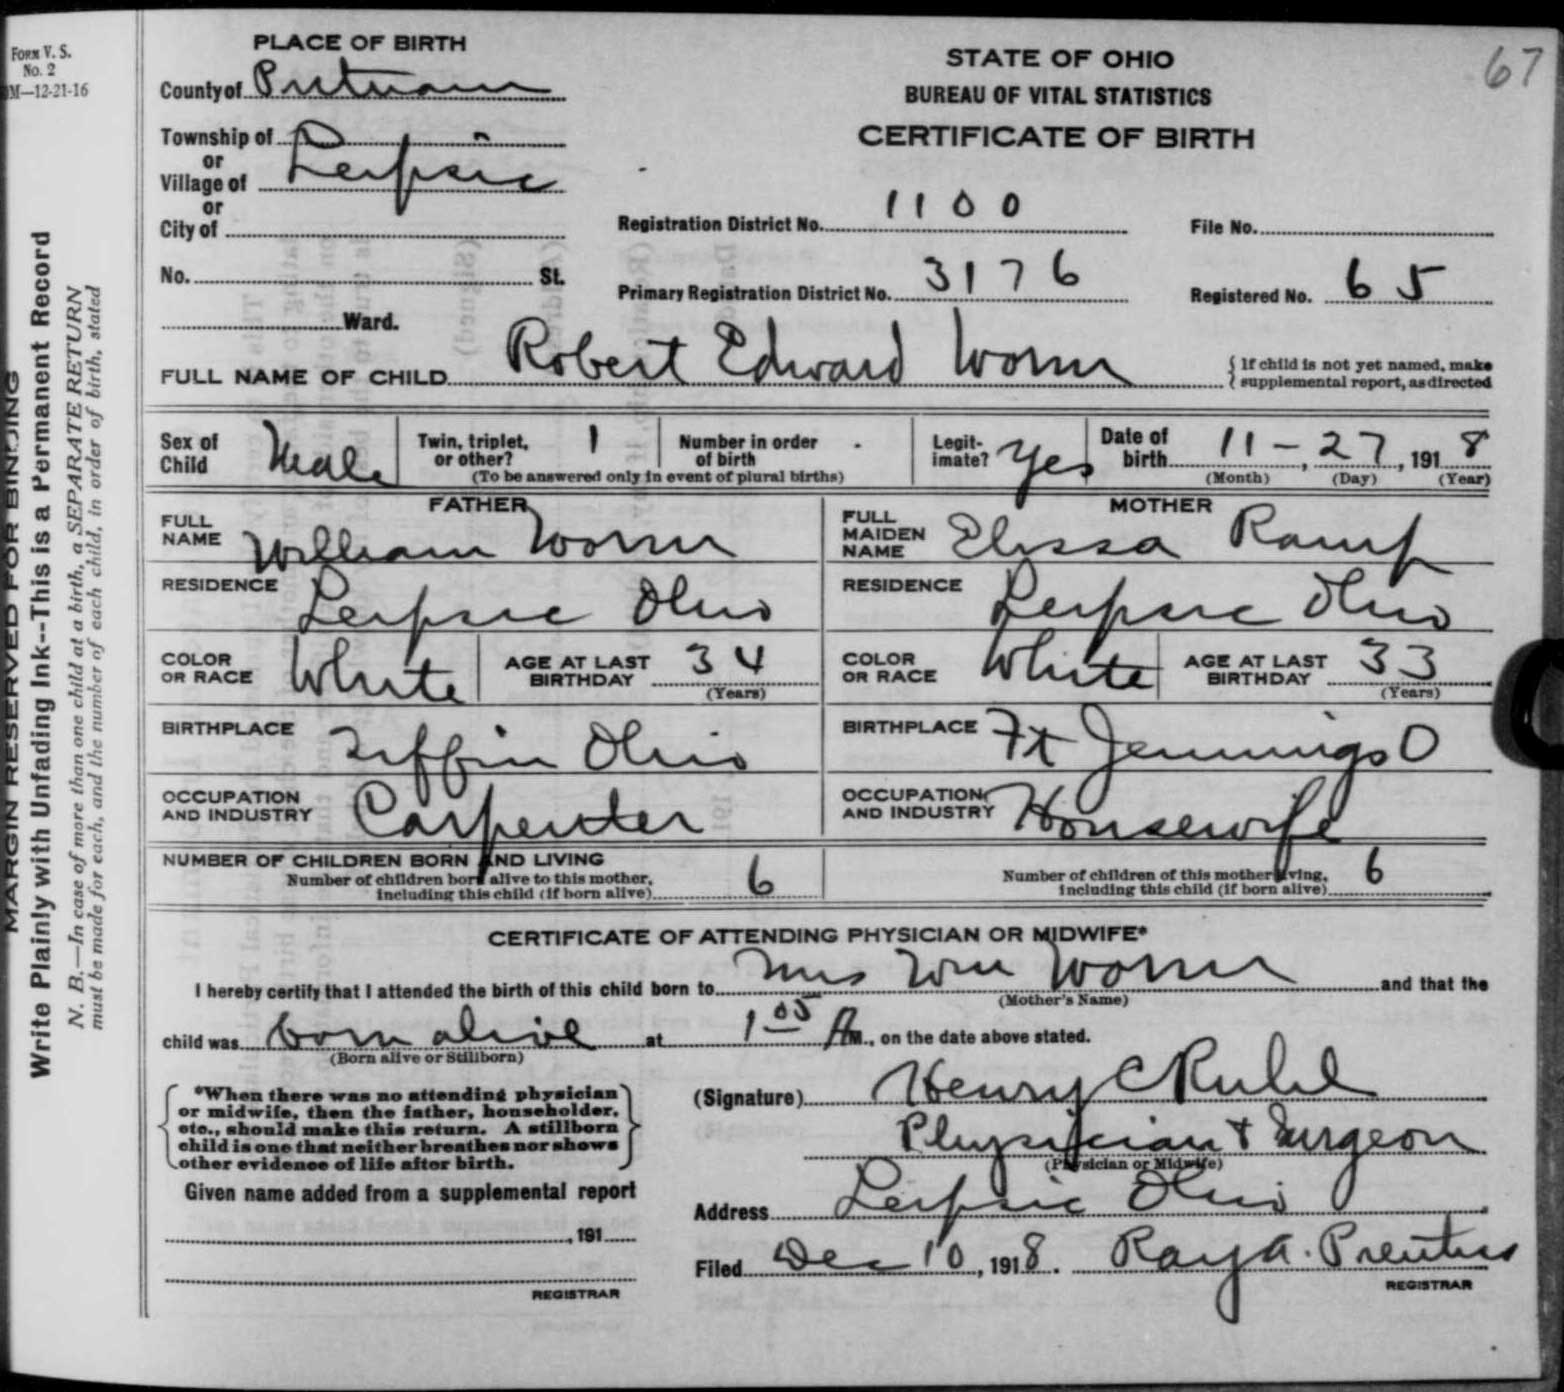 FORM V. S.
No. 2
M—12-21-16
MARGIN RESERVED FOR BINDING
Write Plainly with Unfading Ink--This is a Permanent Record
N. B.—In case of more than one child at a birth, a SEPARATE RETURN
must be made for each, and the number of each child, in order of birth, stated
67
PLACE OF BIRTH
County of Putnam
Township of
or
Village of Leipsic
or
City of
No. St.
Ward.
STATE OF OHIO
BUREAU OF VITAL STATISTICS
CERTIFICATE OF BIRTH
Registration District No. 1100
File No.
Primary Registration District No. 3176
Registered No. 65
FULL NAME OF CHILD Robert Edward
{ If child is not yet named, make
supplemental report, as directed
Sex of Child Male
Twin, triplet, or other? 1
Number in order of birth
(To be answered only in event of plural births)
Legitimate? Yes
Date of birth 11-, 27, 1918
(Month) (Day) (Year)
FATHER
FULL NAME William
RESIDENCE Leipsic Ohio
COLOR OR RACE White
AGE AT LAST BIRTHDAY 34
(Years)
BIRTHPLACE Tiffin Ohio
OCCUPATION AND INDUSTRY Carpenter
MOTHER
FULL MAIDEN NAME Elissa Ramp
RESIDENCE Leipsic Ohio
COLOR OR RACE White
AGE AT LAST BIRTHDAY 33
(Years)
BIRTHPLACE Ft Jennings O
OCCUPATION AND INDUSTRY Housewife
NUMBER OF CHILDREN BORN AND LIVING
Number of children born alive to this mother,
including this child (if born alive) 6
Number of children of this mother living,
including this child (if born alive) 6
CERTIFICATE OF ATTENDING PHYSICIAN OR MIDWIFE*
I hereby certify that I attended the birth of this child born to Mrs Wm and that the
(Mother's Name)
child was born alive at 1 05 A M., on the date above stated.
(Born alive or Stillborn)
*When there was no attending physician
or midwife, then the father, householder,
etc., should make this return. A stillborn
child is one that neither breathes nor shows
other evidence of life after birth.
(Signature) Henry C
Physician & Surgeon
(Physician or Midwife)
Given name added from a supplemental report
, 191
REGISTRAR
Address Leipsic Ohio
Filed Dec 10, 1918. Ray A. Prentiss
REGISTRAR